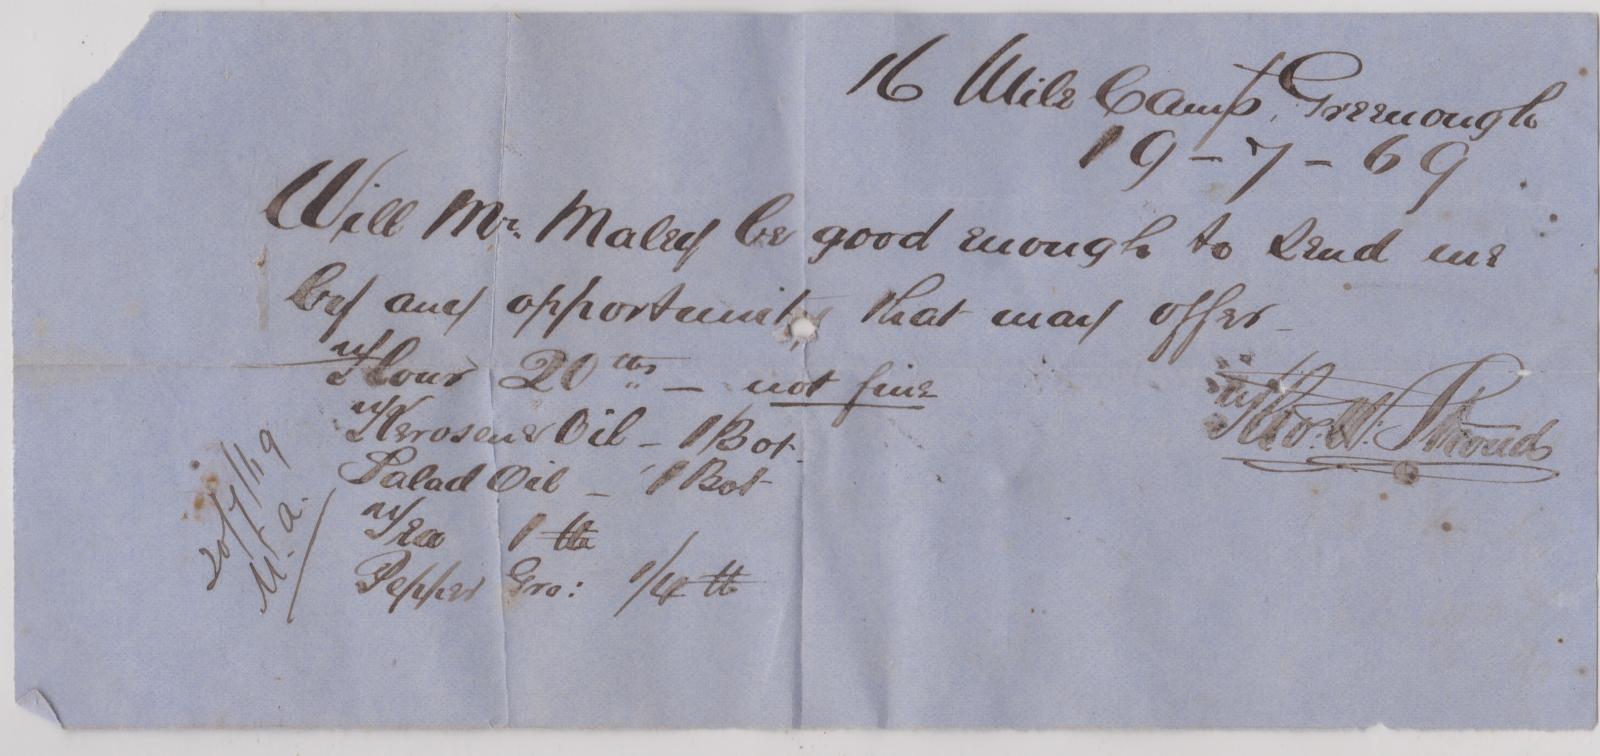 16 Mile Camp, Greenough
19-7-69
Will Mr. Maley be good enough to send me
by any opportunity that may offer
Flour 20 lbs — not fine
Kerosene Oil - 1 Bot
Salad Oil - 1 Bot
Tea 1 lb
Pepper Gro: 1/4 lb
20/7/
M. A.